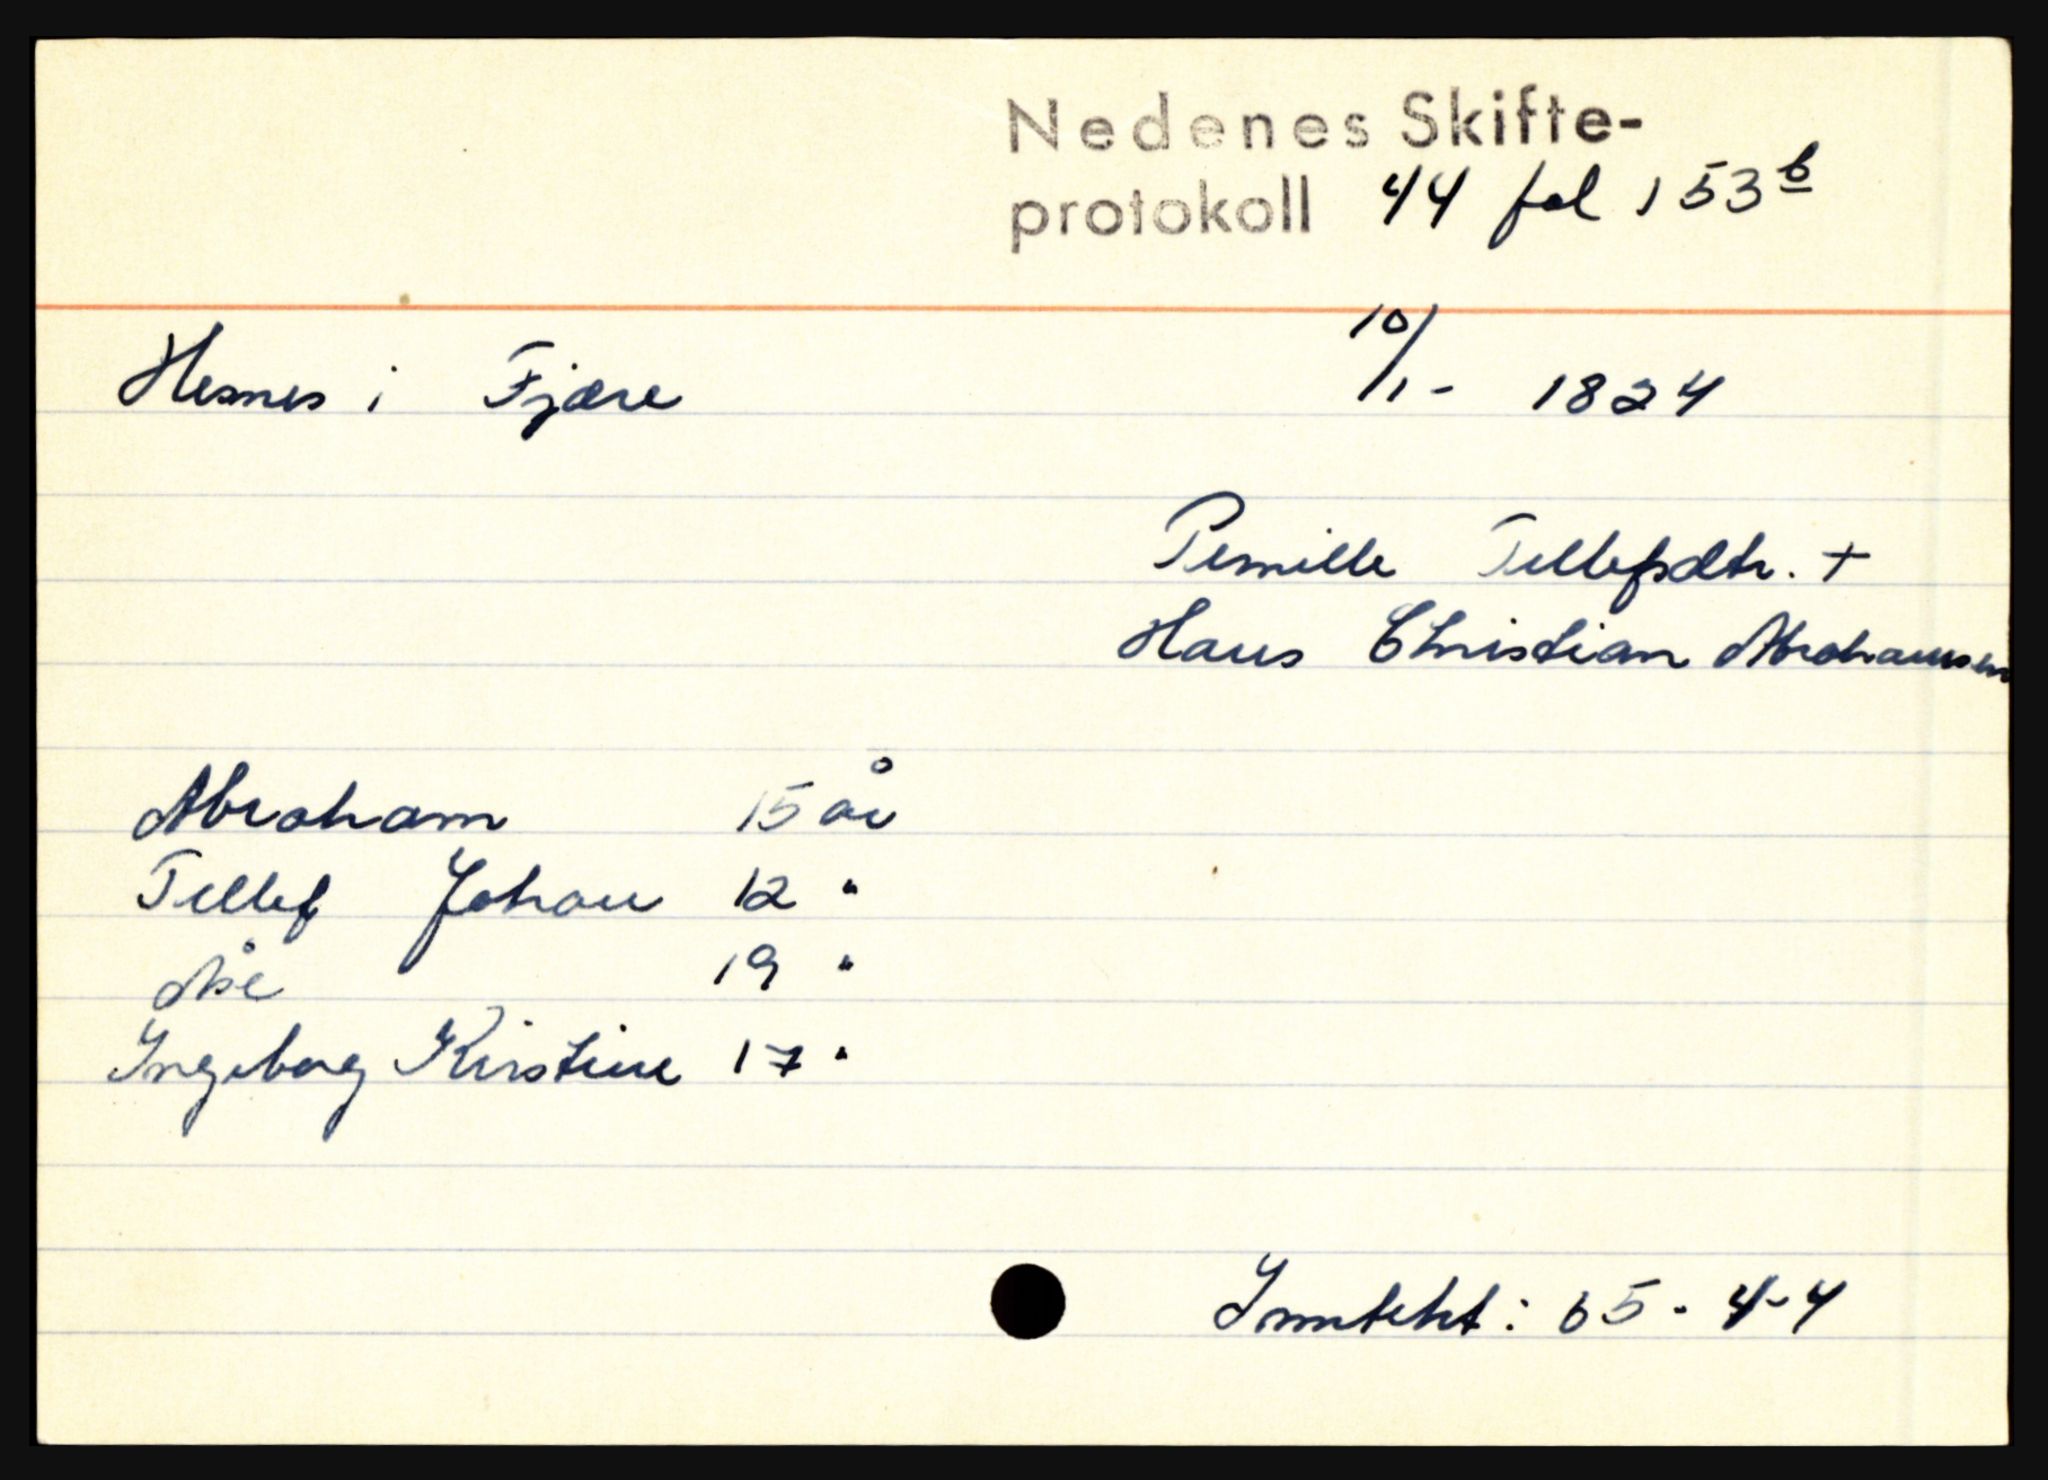 Nedenes Skifte-
protokoll 44 fol 153 b
Hesnes i Fjære 10/1 - 1824
Pernille Tellefsdtr. +
Hans Christian Abrahamsen
Abraham 15 år
Tellef Johan 12 "
Åse 19 "
Ingeborg Kirstine 17 "
Inntekt: 65 - 4 - 4